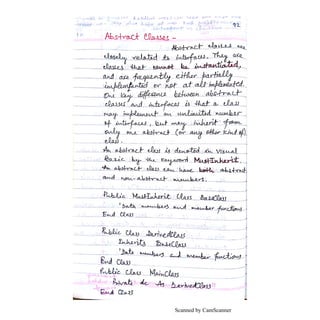 92
Abstract Classes -
Abstract classes are
closely related to interfaces. They are
classes that cannot be instantiated,
and are frequently either partially
implemented or not at all implemented.
One key difference between abstract
classes and interfaces is that a class
may implement an unlimited number
of interfaces, but may inherit from
only one abstract (or any other kind of)
class.
An abstract class is denoted in Visual
Basic by the keyword MustInherit.
An abstract class can have both abstract
and non-abstract members.
Public MustInherit Class BaseClass
'Data members and member functions
End Class
Public Class DerivedClass
Inherits BaseClass
'Data members and member functions.
End Class
Public Class MainClass
Private dc As DerivedClass
End Class
Scanned by CamScanner